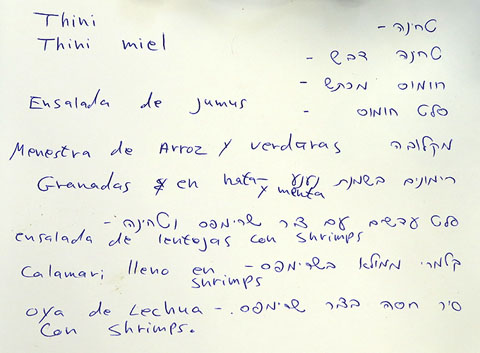 Thini טחינה -
Thini miel טחנה דבש -
חומוס מכתש -
Ensalada de jumus סלט חומוס -
Menestra de Arroz y verdaras מקלובה
Granadas en nata- רימונים בשמנת ונענע
y menta
סלט עדשים עם צדר שרימפס וטחינה -
ensalada de lentojas con shrimps
Calamari lleno en קלמרי ממולא בשרימפס -
shrimps
oya de Lechua - סיר חסה בצדר שרימפס.
Con shrimps.